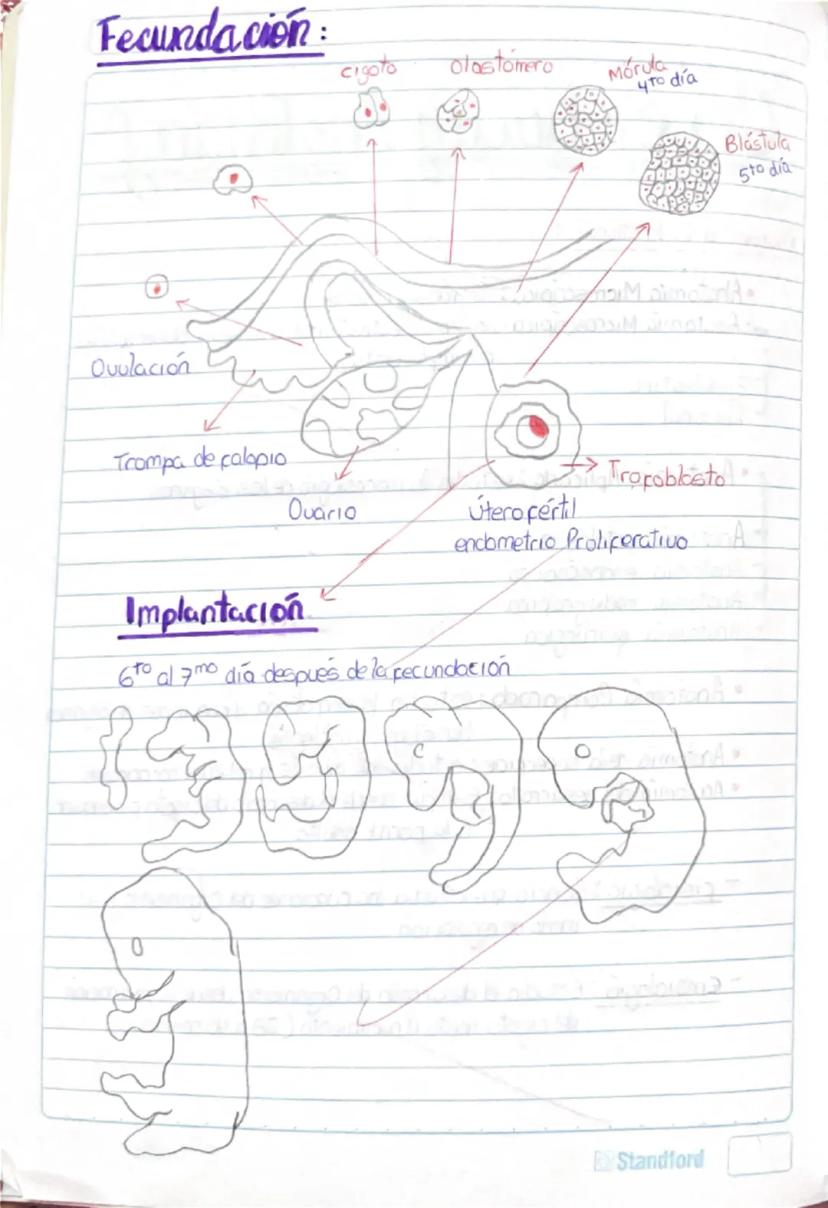 Fecundación:
cigoto
olastómero
Mórula
4to día
Blástula
5to día
Ovulación
Trompa de falopio
Ovário
Trofoblasto
Útero fértil
endometrio Proliferativo
Implantación
6to al 7mo día después de la fecundación
Standford